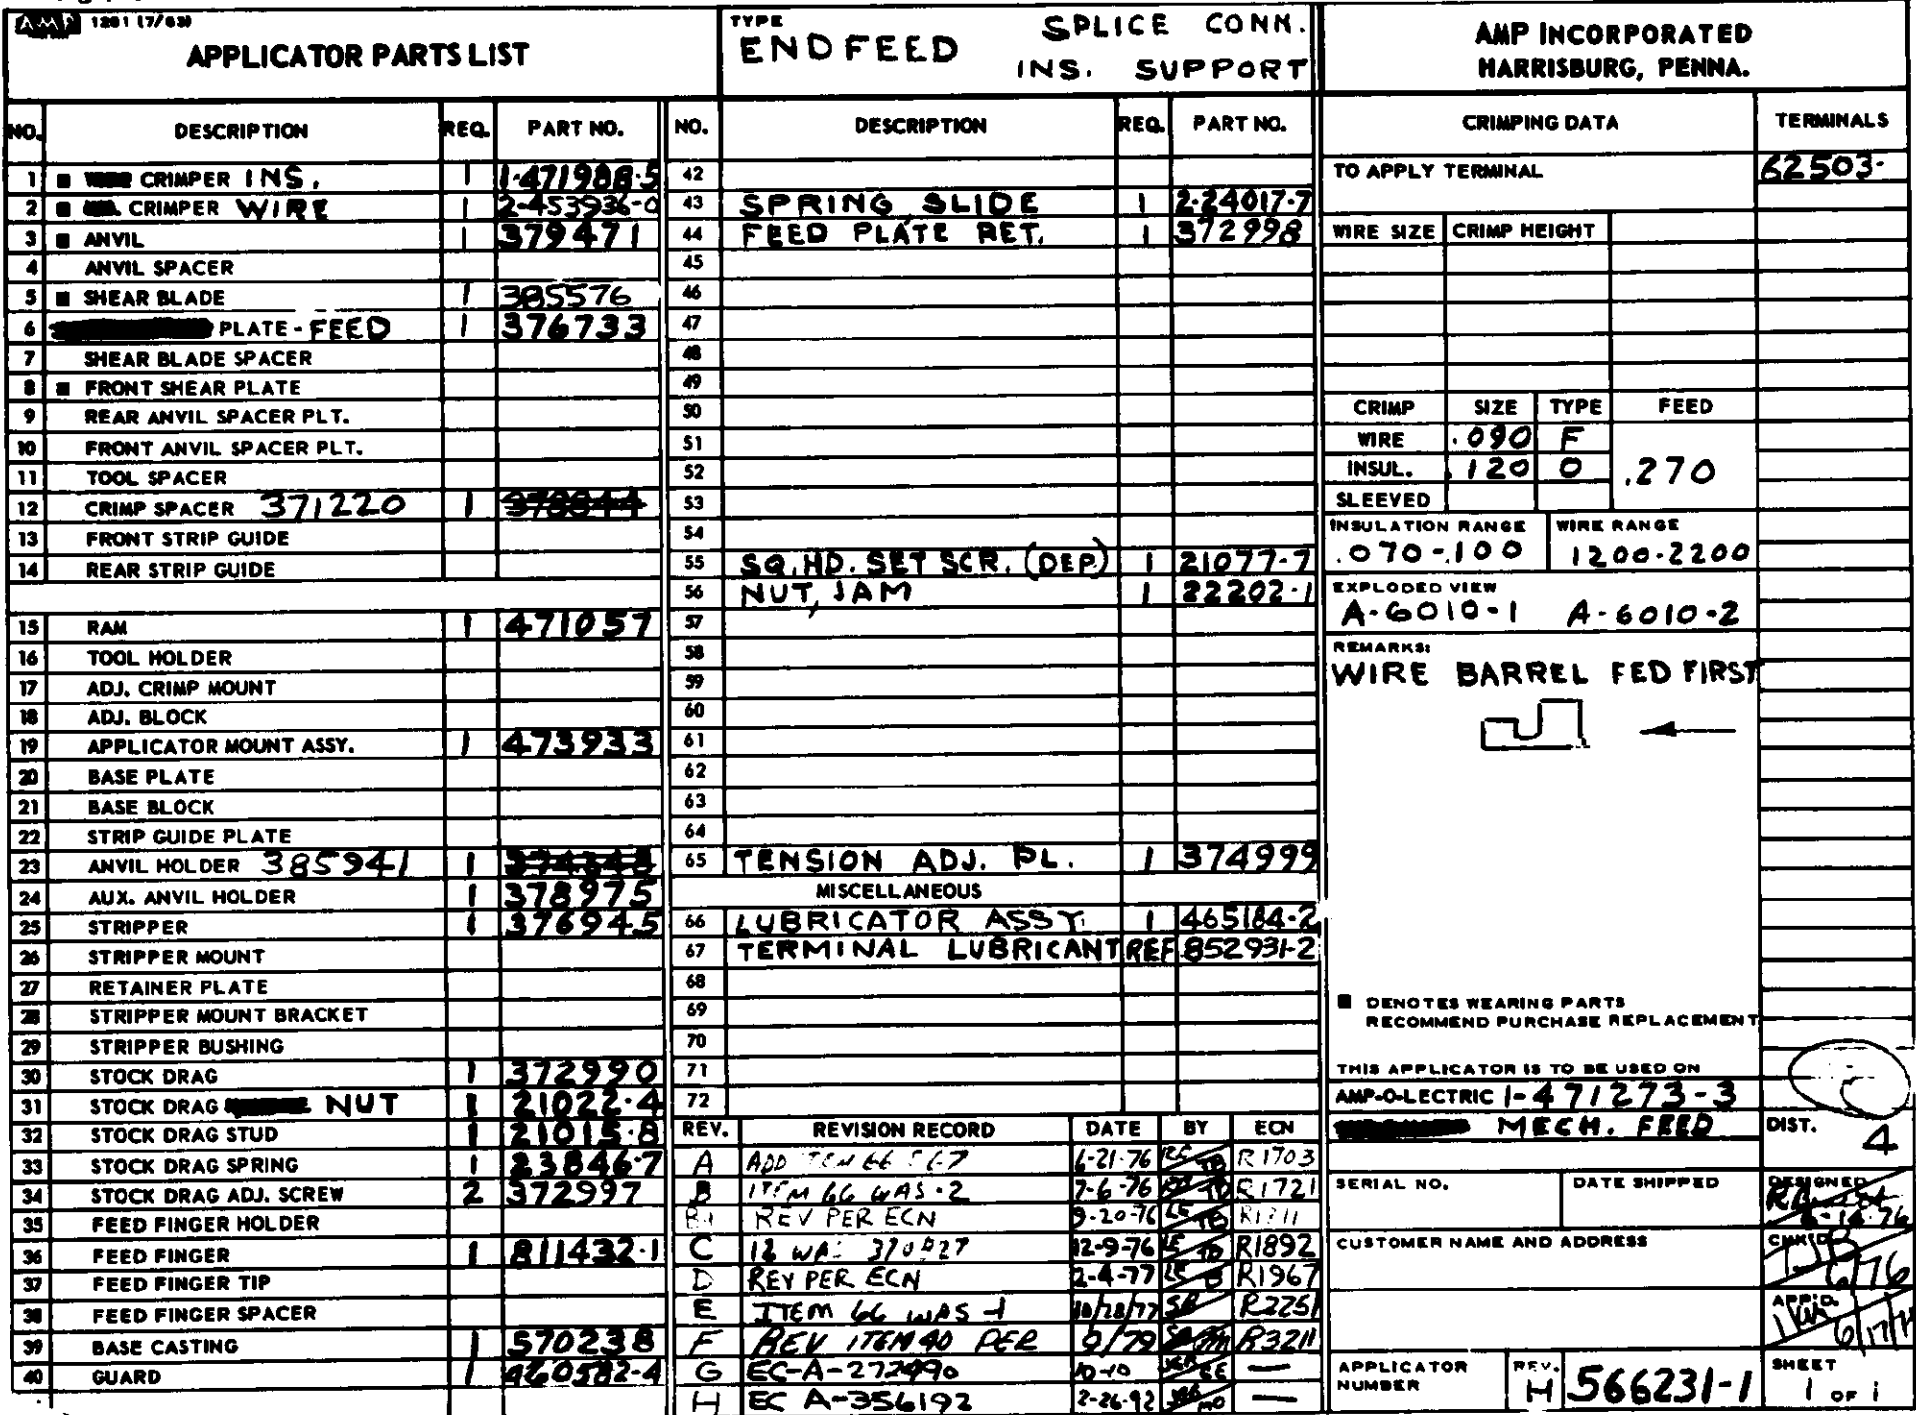 AMP 1281 (7/63)
APPLICATOR PARTS LIST
TYPE
ENDFEED SPLICE CONN.
INS. SUPPORT
AMP INCORPORATED
HARRISBURG, PENNA.
NO. DESCRIPTION REQ. PART NO.
1 ■ CRIMPER INS. 1 1-471988-5
2 ■ CRIMPER WIRE 1 2-453936-0
3 ■ ANVIL 1 379471
4 ANVIL SPACER
5 ■ SHEAR BLADE 1 385576
6 PLATE - FEED 1 376733
7 SHEAR BLADE SPACER
8 ■ FRONT SHEAR PLATE
9 REAR ANVIL SPACER PLT.
10 FRONT ANVIL SPACER PLT.
11 TOOL SPACER
12 CRIMP SPACER 371220 1
13 FRONT STRIP GUIDE
14 REAR STRIP GUIDE
15 RAM 1 471057
16 TOOL HOLDER
17 ADJ. CRIMP MOUNT
18 ADJ. BLOCK
19 APPLICATOR MOUNT ASSY. 1 473933
20 BASE PLATE
21 BASE BLOCK
22 STRIP GUIDE PLATE
23 ANVIL HOLDER 385941 1
24 AUX. ANVIL HOLDER 1 378975
25 STRIPPER 1 376945
26 STRIPPER MOUNT
27 RETAINER PLATE
28 STRIPPER MOUNT BRACKET
29 STRIPPER BUSHING
30 STOCK DRAG 1 372990
31 STOCK DRAG NUT 1 21022-4
32 STOCK DRAG STUD 1 21015-8
33 STOCK DRAG SPRING 1 23846-7
34 STOCK DRAG ADJ. SCREW 2 372997
35 FEED FINGER HOLDER
36 FEED FINGER 1 811432-1
37 FEED FINGER TIP
38 FEED FINGER SPACER
39 BASE CASTING 1 570238
40 GUARD 1 460582-4
NO. DESCRIPTION REQ. PART NO.
42
43 SPRING SLIDE 1 2-24017-7
44 FEED PLATE RET. 1 372998
45
46
47
48
49
50
51
52
53
54
55 SQ. HD. SET SCR. (DEP.) 1 21077-7
56 NUT, JAM 1 22202-1
57
58
59
60
61
62
63
64
65 TENSION ADJ. PL. 1 374999
MISCELLANEOUS
66 LUBRICATOR ASSY. 1 465184-2
67 TERMINAL LUBRICANT REF 852931-2
68
69
70
71
72
REV. REVISION RECORD DATE BY ECN
A ADD 66 67 6-21-76 R1703
B ITEM 66 WAS -2 7-6-76 R1721
REV PER ECN 9-20-76
C 12 WAS 12-9-76 R1892
D REV PER ECN 2-4-77 R1967
E ITEM 66 WAS -1 10/28/77 R2251
F REV ITEM 40 PER 9/79 R3211
G EC-A-272490 10-10 —
H EC A-356192 2-26-92 —
CRIMPING DATA TERMINALS
TO APPLY TERMINAL 62503-
WIRE SIZE CRIMP HEIGHT
CRIMP SIZE TYPE FEED
WIRE .090 F
INSUL. .120 O .270
SLEEVED
INSULATION RANGE WIRE RANGE
.070-.100 1200-2200
EXPLODED VIEW
A-6010-1 A-6010-2
REMARKS:
WIRE BARREL FED FIRST
■ DENOTES WEARING PARTS
RECOMMEND PURCHASE REPLACEMENT
THIS APPLICATOR IS TO BE USED ON
AMP-O-LECTRIC 1-471273-3
MECH. FEED
DIST.
4
SERIAL NO. DATE SHIPPED
DESIGNED
6-14-76
CUSTOMER NAME AND ADDRESS
CHK'D.
6/76
APP'D.
6/17/76
APPLICATOR
NUMBER
REV.
H
566231-1
SHEET
1 OF 1